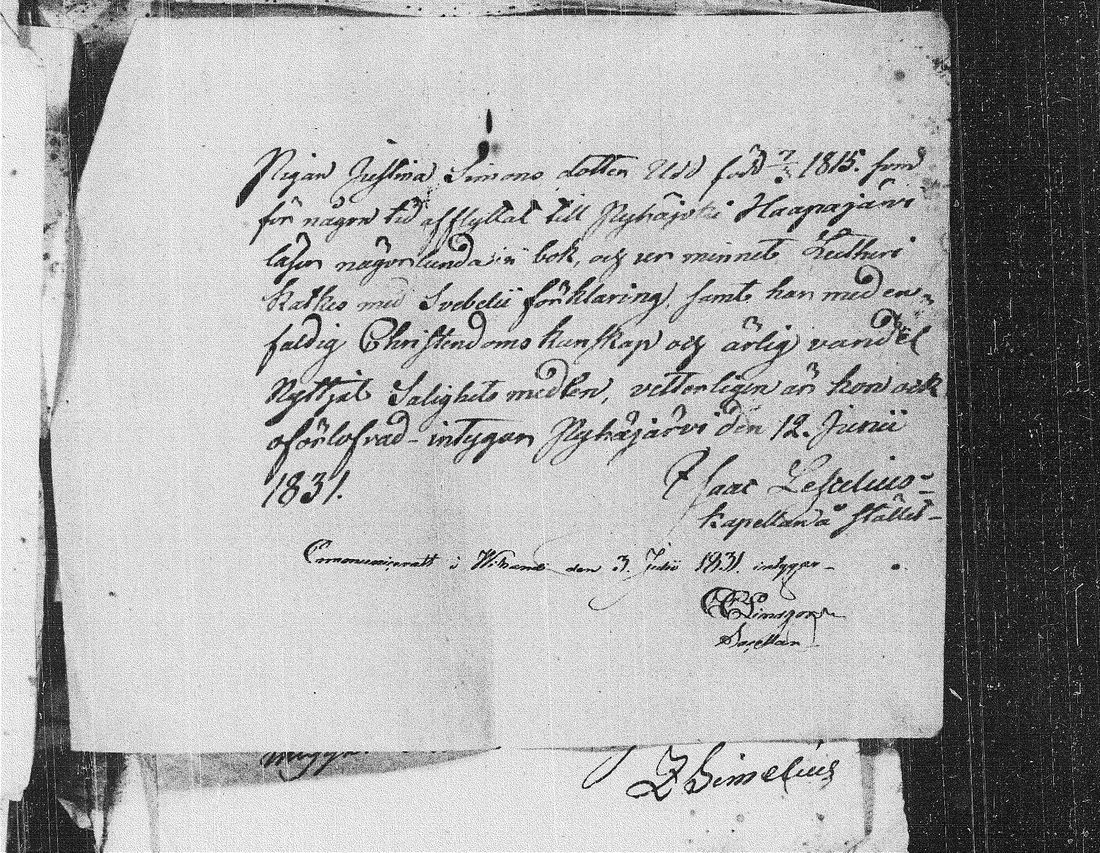 Pigan Justina Simons dotter Udd född 7/ 1815. som
för någon tid afflyttat till Pyhäjoki Haapajärvi
läser någorlunda i bok, och ur minnet Lutheri
Katkes med Svebelii förklaring, samt har med en-
faldig Christendoms kunskap och ärlig vandel
Nyttjat Salighets medlen, vetterligen är hon ock
oförlofvad - intygar Pyhäjärvi den 12. Junii
1831.
Isaac
kapellan å stället -
Communicerat i den 3. Julii 1831. intygar -
Sacellan
intygar
Z Simelius